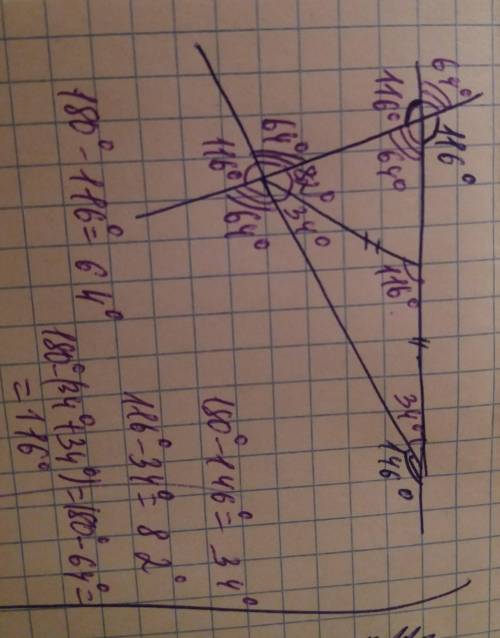 64°
116°
116°
64°
116°
34°
146°
82°
34°
64°
116°
64°
180° - 146° = 34°
116° - 34° = 82°
180° - 116° = 64°
180° - (34° + 34°) = 180° - 64° =
= 116°